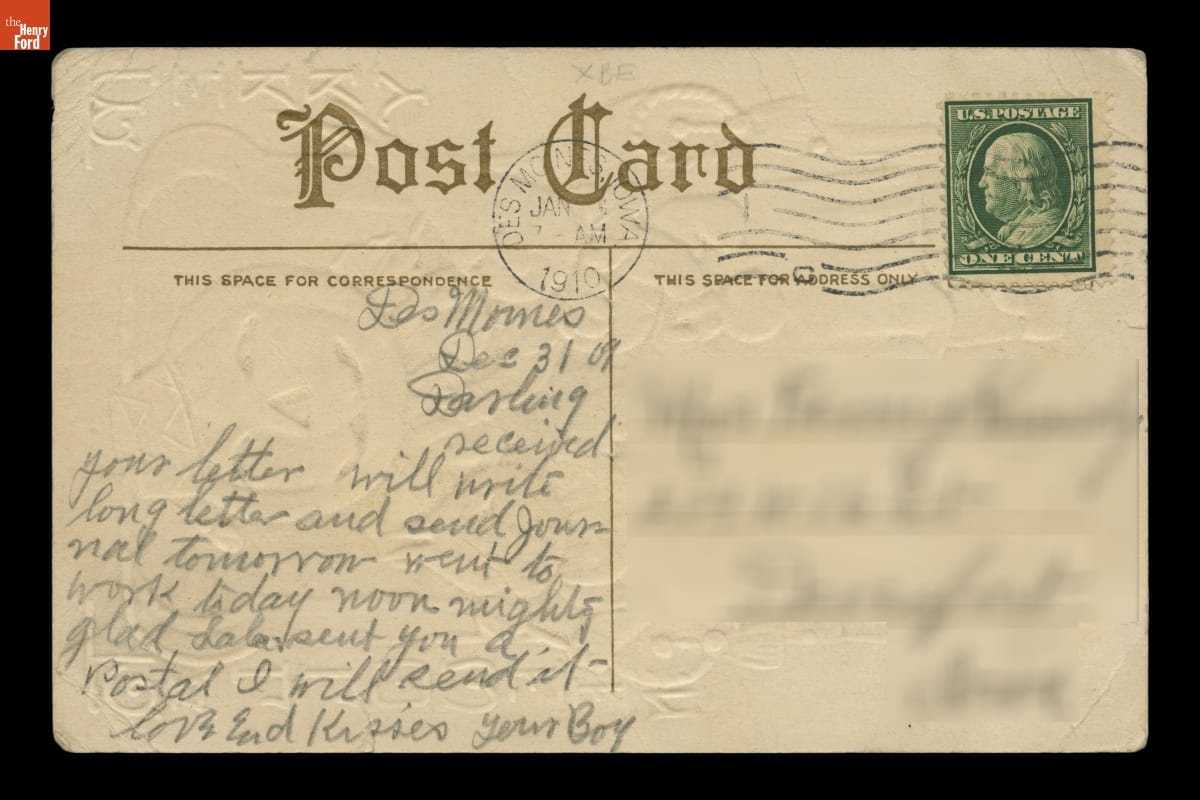 the
Henry
Ford
XBE
Post Card
U.S. POSTAGE
ONE CENT
DES MOINES, IOWA
JAN
7 - AM
1910
THIS SPACE FOR CORRESPONDENCE
THIS SPACE FOR ADDRESS ONLY
Des Moines
Dec 31 09
Darling
received
your letter will write
long letter and send Jour-
nal tomorrow went to
work today noon mighty
glad sent you a
Postal I will send it
love End Kisses Your Boy